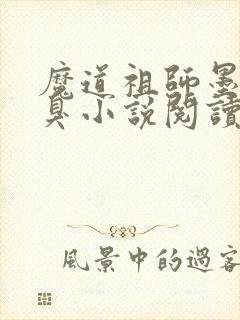 魔道祖師墨
臭小説閱讀
風景中的過客